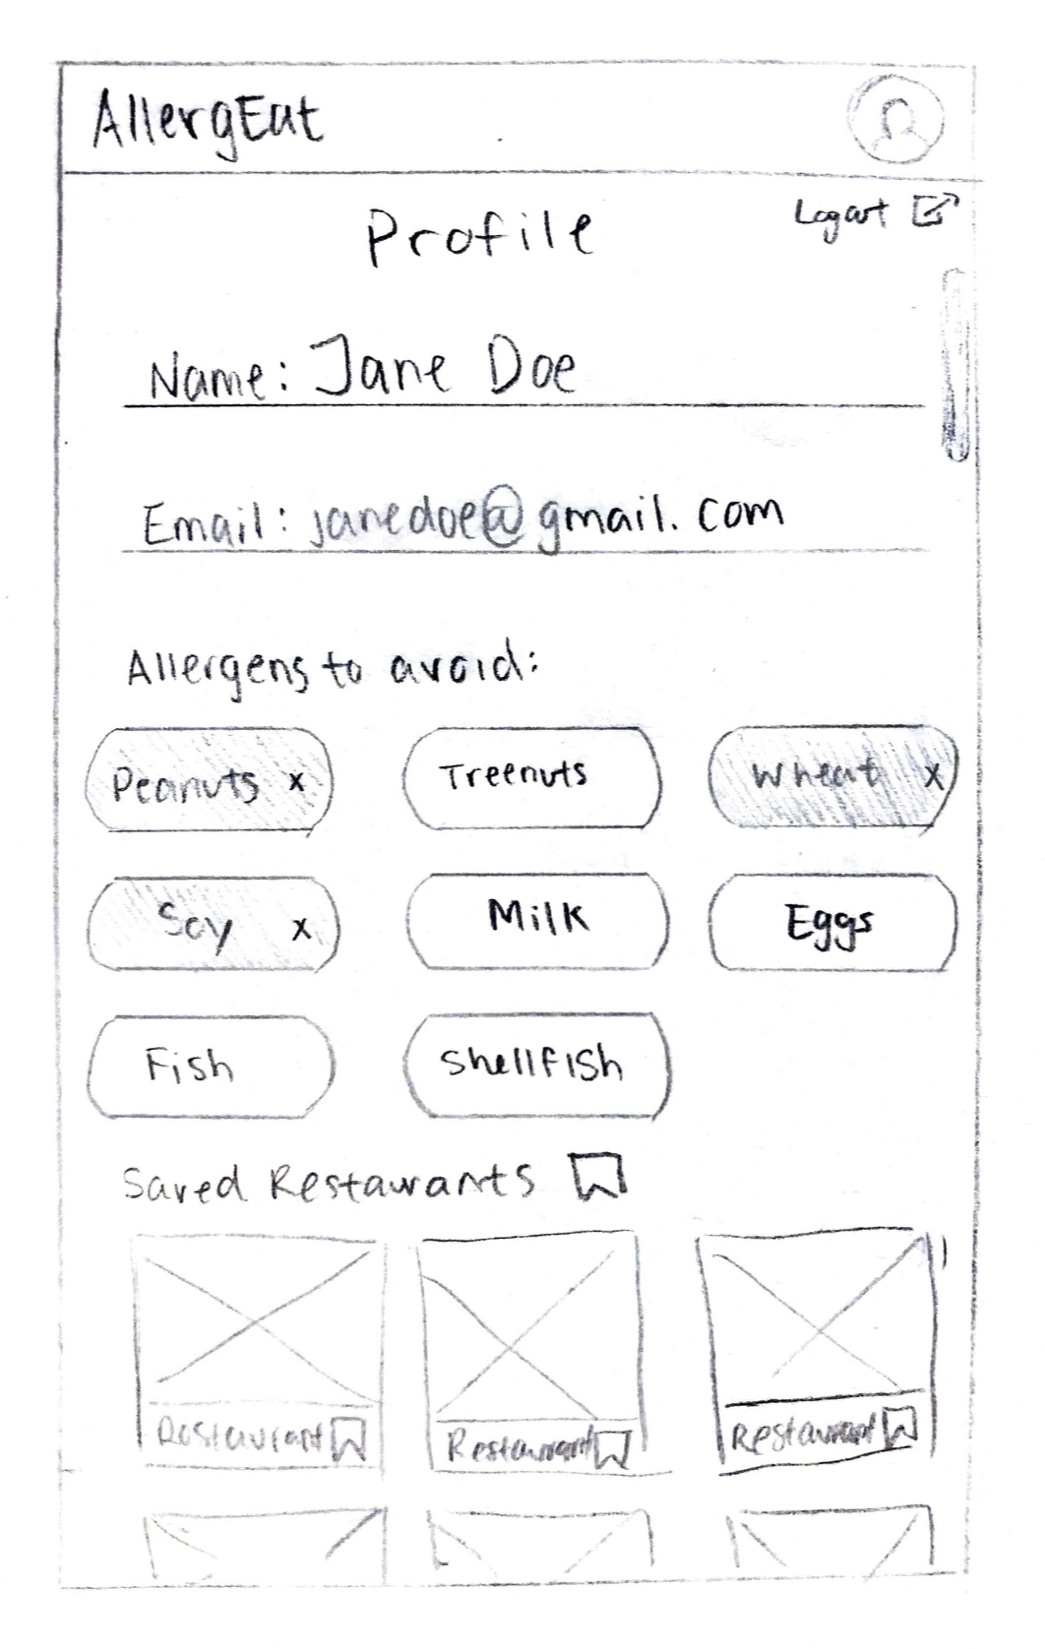 AllergEat
Logout
Profile
Name: Jane Doe
Email: janedoe@gmail.com
Allergens to avoid:
Peanuts x Treenuts Wheat x
Soy x Milk Eggs
Fish Shellfish
Saved Restaurants
Restaurant Restaurant Restaurant